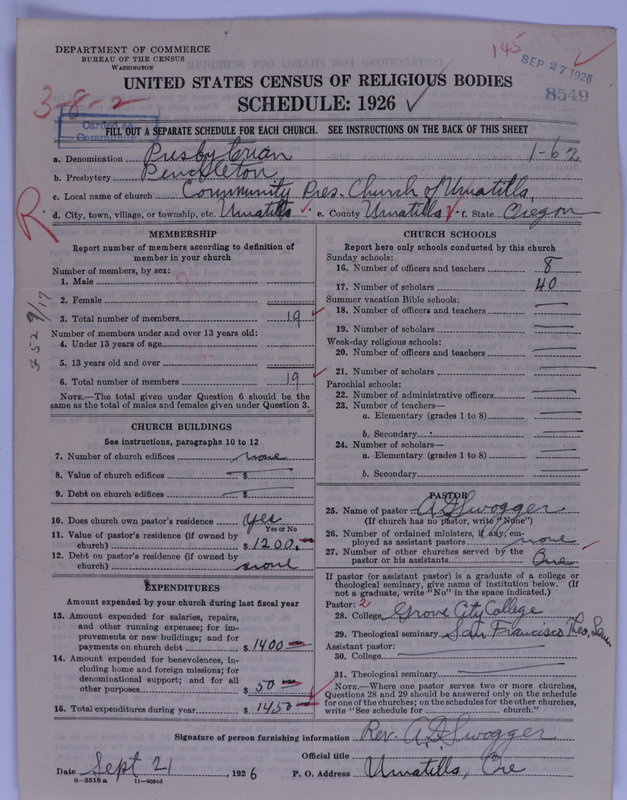 DEPARTMENT OF COMMERCE
BUREAU OF THE CENSUS
WASHINGTON
145
SEP 27 1926
8549
UNITED STATES CENSUS OF RELIGIOUS BODIES
SCHEDULE: 1926 ✓
3-8-2
Carded as
Community
FILL OUT A SEPARATE SCHEDULE FOR EACH CHURCH. SEE INSTRUCTIONS ON THE BACK OF THIS SHEET
a. Denomination Presbyterian 1-62
b. Presbytery Pendleton
c. Local name of church Community Pres. Church of Umatilla,
d. City, town, village, or township, etc. Umatilla e. County Umatilla f. State Oregon
R
MEMBERSHIP
Report number of members according to definition of
member in your church
Number of members, by sex:
1. Male
2. Female
3. Total number of members 19
Number of members under and over 13 years old:
4. Under 13 years of age
5. 13 years old and over
6. Total number of members 19
NOTE.—The total given under Question 6 should be the
same as the total of males and females given under Question 3.
CHURCH BUILDINGS
See instructions, paragraphs 10 to 12
7. Number of church edifices none
8. Value of church edifices $
9. Debt on church edifices $
10. Does church own pastor's residence yes
Yes or No
11. Value of pastor's residence (if owned by
church) $ 1200.
12. Debt on pastor's residence (if owned by
church) none
EXPENDITURES
Amount expended by your church during last fiscal year
13. Amount expended for salaries, repairs,
and other running expenses; for im-
provements or new buildings; and for
payments on church debt $ 1400
14. Amount expended for benevolences, in-
cluding home and foreign missions; for
denominational support; and for all
other purposes $ 50
15. Total expenditures during year $ 1450
CHURCH SCHOOLS
Report here only schools conducted by this church
Sunday schools:
16. Number of officers and teachers 8
17. Number of scholars 40
Summer vacation Bible schools:
18. Number of officers and teachers
19. Number of scholars
Week-day religious schools:
20. Number of officers and teachers
21. Number of scholars
Parochial schools:
22. Number of administrative officers
23. Number of teachers—
a. Elementary (grades 1 to 8)
b. Secondary
24. Number of scholars—
a. Elementary (grades 1 to 8)
b. Secondary
PASTOR
25. Name of pastor A D Swogger
(If church has no pastor, write "None")
26. Number of ordained ministers, if any, em-
ployed as assistant pastors none
27. Number of other churches served by the
pastor or his assistants One
If pastor (or assistant pastor) is a graduate of a college or
theological seminary, give name of institution below. (If
not a graduate, write "No" in the space indicated.)
Pastor: 2
28. College Grove City College
29. Theological seminary San Francisco Theo. Sem
Assistant pastor:
30. College
31. Theological seminary
NOTE.—Where one pastor serves two or more churches,
Questions 28 and 29 should be answered only on the schedule
for one of the churches; on the schedules for the other churches,
write "See schedule for church."
Signature of person furnishing information Rev. A. D. Swogger
Official title
Date Sept 21, 1926 P. O. Address Umatilla, Ore
8-5518 a